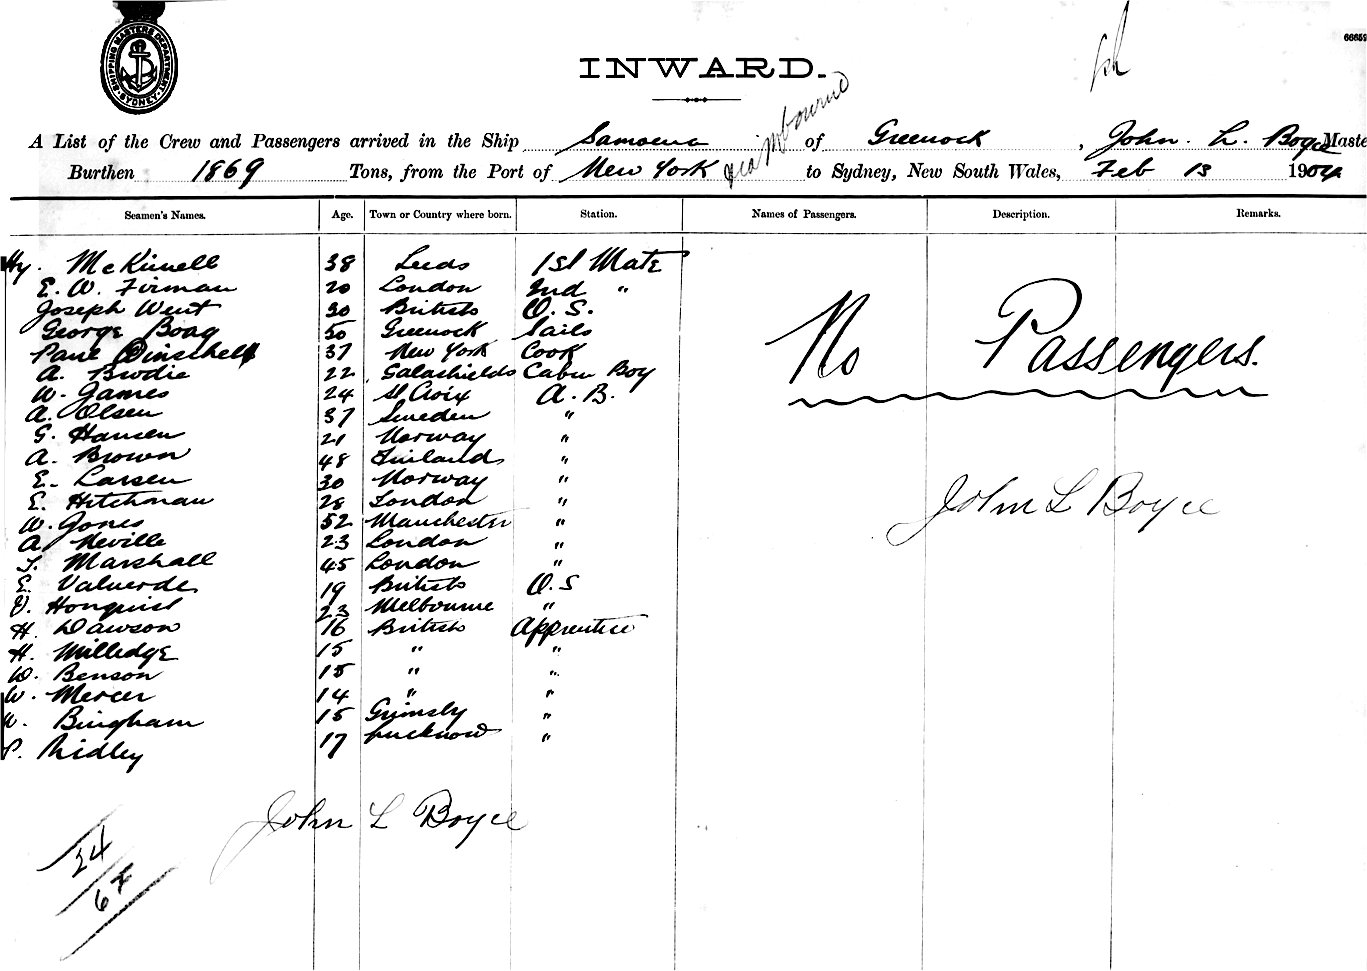 SHIPPING MASTERS DEPARTMENT SYDNEY
66659
INWARD.
A List of the Crew and Passengers arrived in the Ship Samoena of Greenock, John. L. Boyce Maste
via Melbourne
Burthen 1869 Tons, from the Port of New York to Sydney, New South Wales, Feb 13 1904
Seamen's Names. Age. Town or Country where born. Station. Names of Passengers. Description. Remarks.
Hy. McKinnell 38 Leeds 1st Mate
E. W. Firman 20 London 2nd "
Joseph Went 30 British O. S.
George Boag 50 Greenock Sails
Paul 37 New York Cook
A. Brodie 22 Galashields Cabin Boy
W. James 24 St Croix A. B.
A. Olsen 37 Sweden "
G. Hansen 21 Norway "
A. Brown 48 Finland "
E. Larsen 30 Norway "
E. Hitchman 28 London "
W. Jones 52 Manchester "
A Neville 23 London "
T. Marshall 45 London "
E. Valuerde 19 British O. S
Honquist 23 Melbourne "
H. Dawson 16 British Apprentice
H. Milledge 15 " "
W. Benson 15 " "
W. Mercer 14 " "
W. Bingham 15 Grimsby "
P. Ridley 17 Lucknow "
No Passengers.
John L Boyce
John L Boyce
24